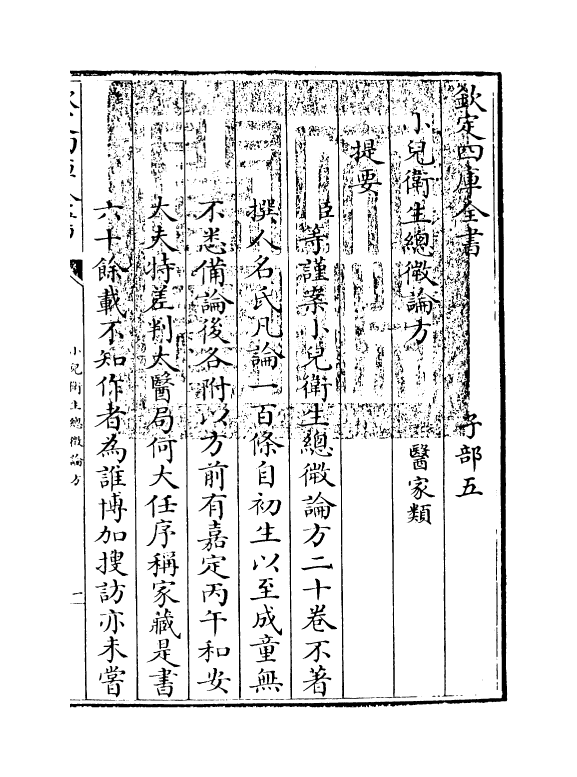 欽定四庫全書 子部五
小兒衛生總微論方 醫家類
提要
臣等謹案小兒衛生總微論方二十卷不著
撰人名氏凡論一百條自初生以至成童無
不悉備論後各附以方前有嘉定丙午和安
大夫特差判太醫局何大任序稱家藏是書
六十餘載不知作者為誰博加搜訪亦未嘗
小兒衛生總微論方